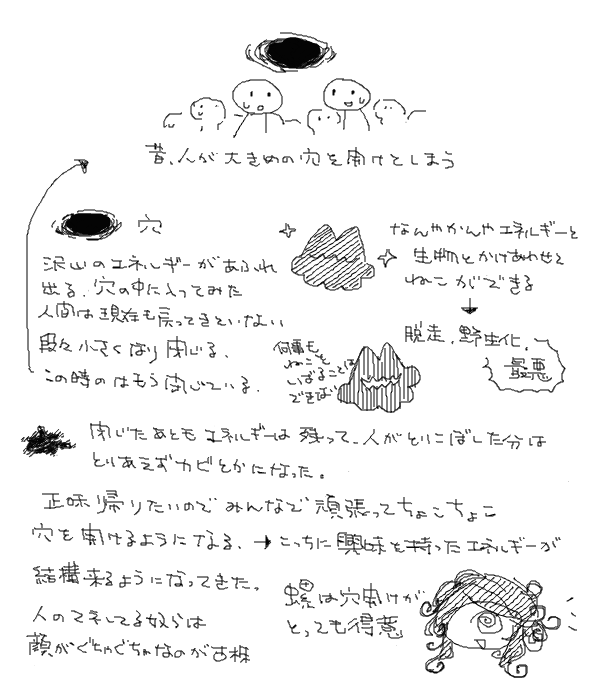 昔、人が大きめの穴を開けてしまう
穴
沢山のエネルギーがあふれ
出る、穴の中に入ってみた
人間は現在も戻ってきていない
段々小さくなり閉じる、
この時のはもう閉じている、
なんやかんやエネルギーと
生物とかけあわせて
ねこができる
↓
脱走、野生化、
最悪
何事も
ねこを
いばることは
できば
閉じたあともエネルギーは残って、人がとりこぼした分は
とりあえずカビとかになった。
正味帰りたいのでみんなで頑張ってちょこちょこ
穴を開けるようになる、→こっちに興味を持ったエネルギーが
結構来るようになってきた。
人のマネしてる奴らは
顔がぐちゃぐちゃなのが古株
螺は穴開けが
とっても得意